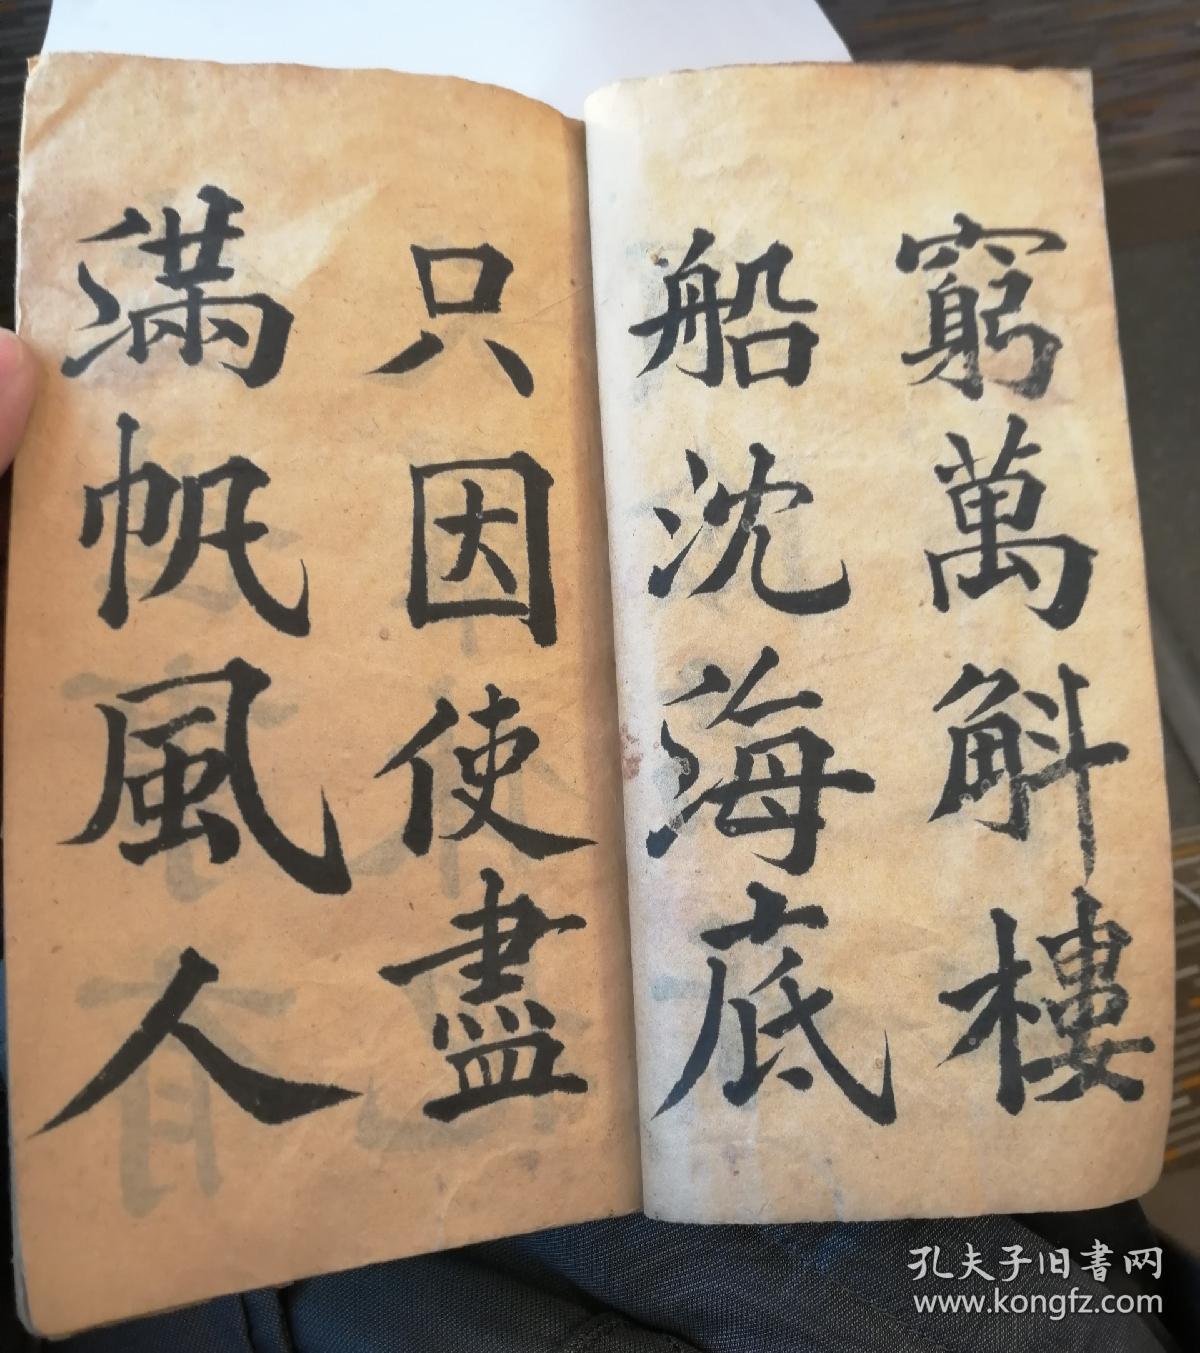 窮萬斛樓
船沈海底
只因使盡
滿帆風人
孔夫子旧書网
www.kongfz.com